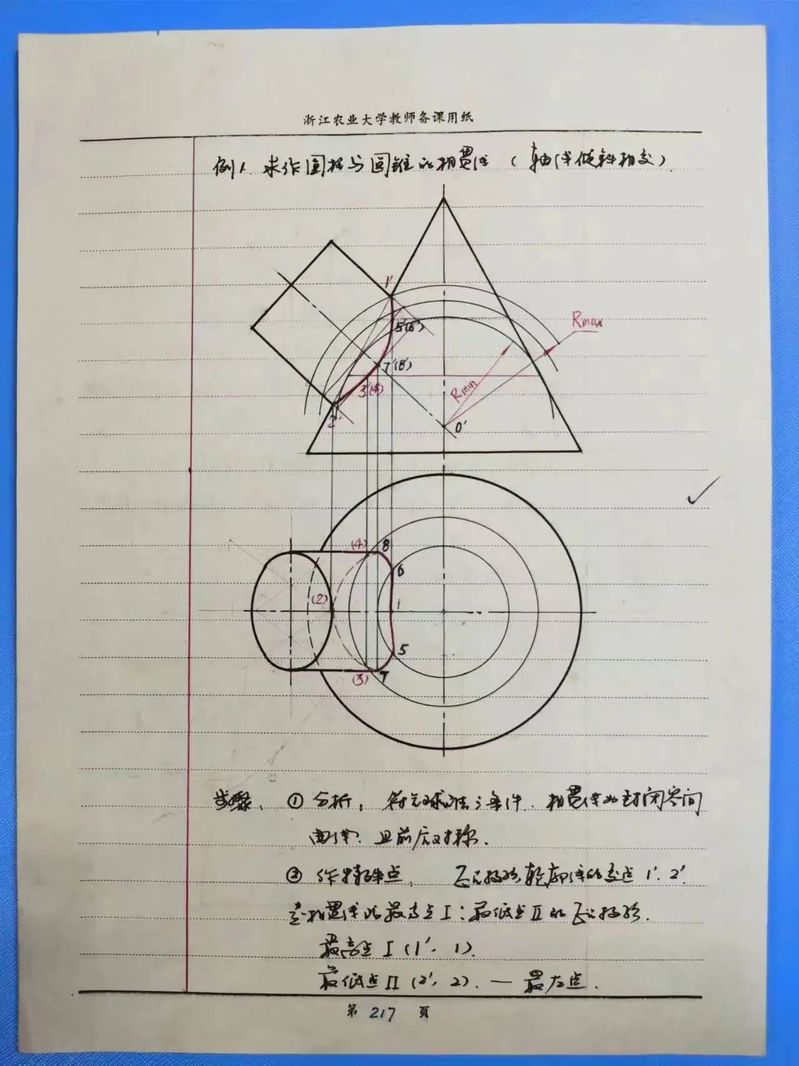 浙江农业大学教师备课用纸
例1. 求作圆柱与圆锥的相贯线 (轴线倾斜相交).
1'
5'(6')
Rmax
7'(8')
3'(4')
Rmin
2'
O'
(4) 8
6
(2) 1
5
(3) 7
步骤. ① 分析, 符合球法三条件. 相贯线为封闭空间
曲线. 且前后对称.
② 作特殊点, 正面投影轮廓线的交点 1'. 2'.
是相贯线的最高点 I; 最低点 II 的正面投影.
最高点 I (1', 1).
最低点 II (2', 2). — 最左点.
第 217 页